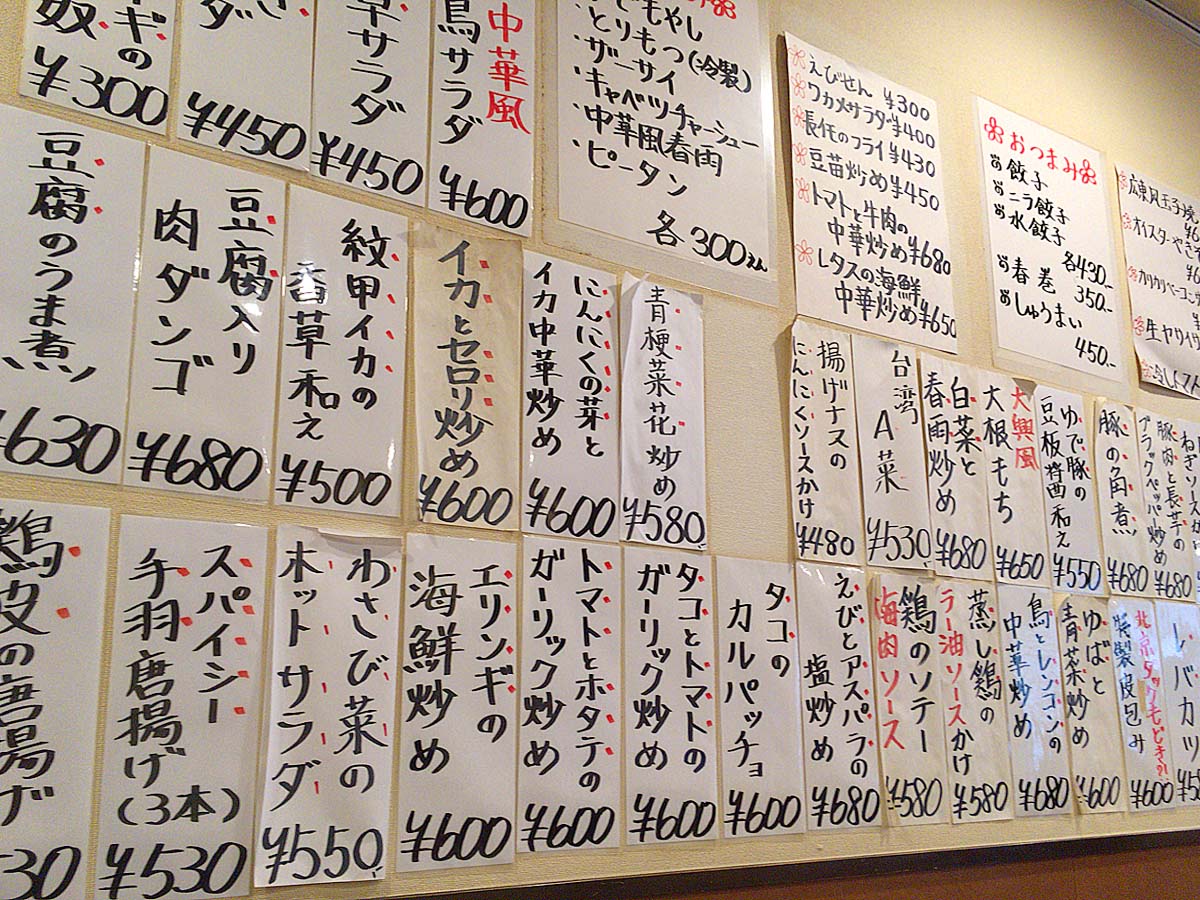 ギの
奴
¥300
ダ
¥450
草サラダ
¥450
中華風
鳥サラダ
¥600
もやし
・とりもつ(冷製)
・ザーサイ
・キャベツチャーシュー
・中華風春雨
・ピータン
各300えん
えびせん ¥300
ワカメサラダ ¥400
長任のフライ ¥430
豆苗炒め ¥450
トマトと牛肉の
中華炒め ¥680
レタスの海鮮
中華炒め ¥650
おつまみ
餃子
ニラ餃子
水餃子
各430.-
春巻 350.-
しゅうまい
450.-
広東風玉子焼
オイスターやきそ
カリカリベーコン
生ヤリイカ
豆腐のうま煮
¥630
豆腐入り
肉ダンゴ
¥680
紋甲イカの
香草和え
¥500
イカとセロリ炒め
¥600
にんにくの芽と
イカ中華炒め
¥600
青梗菜花炒め
¥580
揚げナスの
にんにくソースかけ
¥480
台湾
A菜
¥530
白菜と
春雨炒め
¥680
大興風
大根もち
¥650
ゆで豚の
豆板醤和え
¥550
豚の角煮
¥680
豚肉と長芋の
ブラックペッパー炒め
¥680
ねぎソースか
鶏皮の唐揚げ
530
スパイシー
手羽唐揚げ
(3本)
¥530
わさび菜の
ホットサラダ
¥550
エリンギの
海鮮炒め
¥600
トマトとホタテの
ガーリック炒め
¥600
タコとトマトの
ガーリック炒め
¥600
タコの
カルパッチョ
¥600
えびとアスパラの
塩炒め
¥680
鶏のソテー
梅肉ソース
¥580
蒸し鶏の
ラー油ソースかけ
¥580
鳥とレンコンの
中華炒め
¥680
ゆばと
青菜炒め
¥600
北京ダックもどき?!
特製皮包み
¥600
レバカツ
¥58